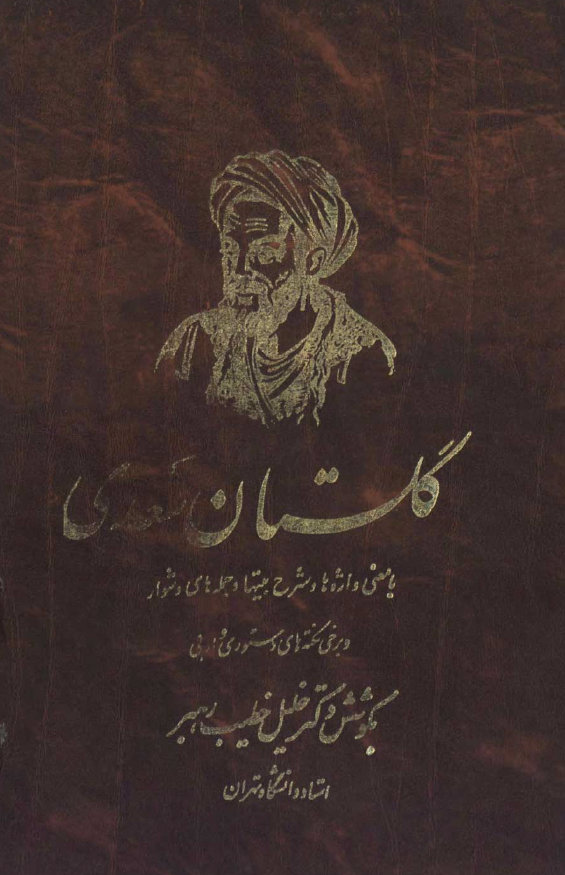 گلستان سعدی
با معنی واژه ها و شرح بیتها و جمله های دشوار
و برخی نکته های دستوری و ادبی
بکوشش دکتر خلیل خطیب رهبر
استاد دانشگاه تهران